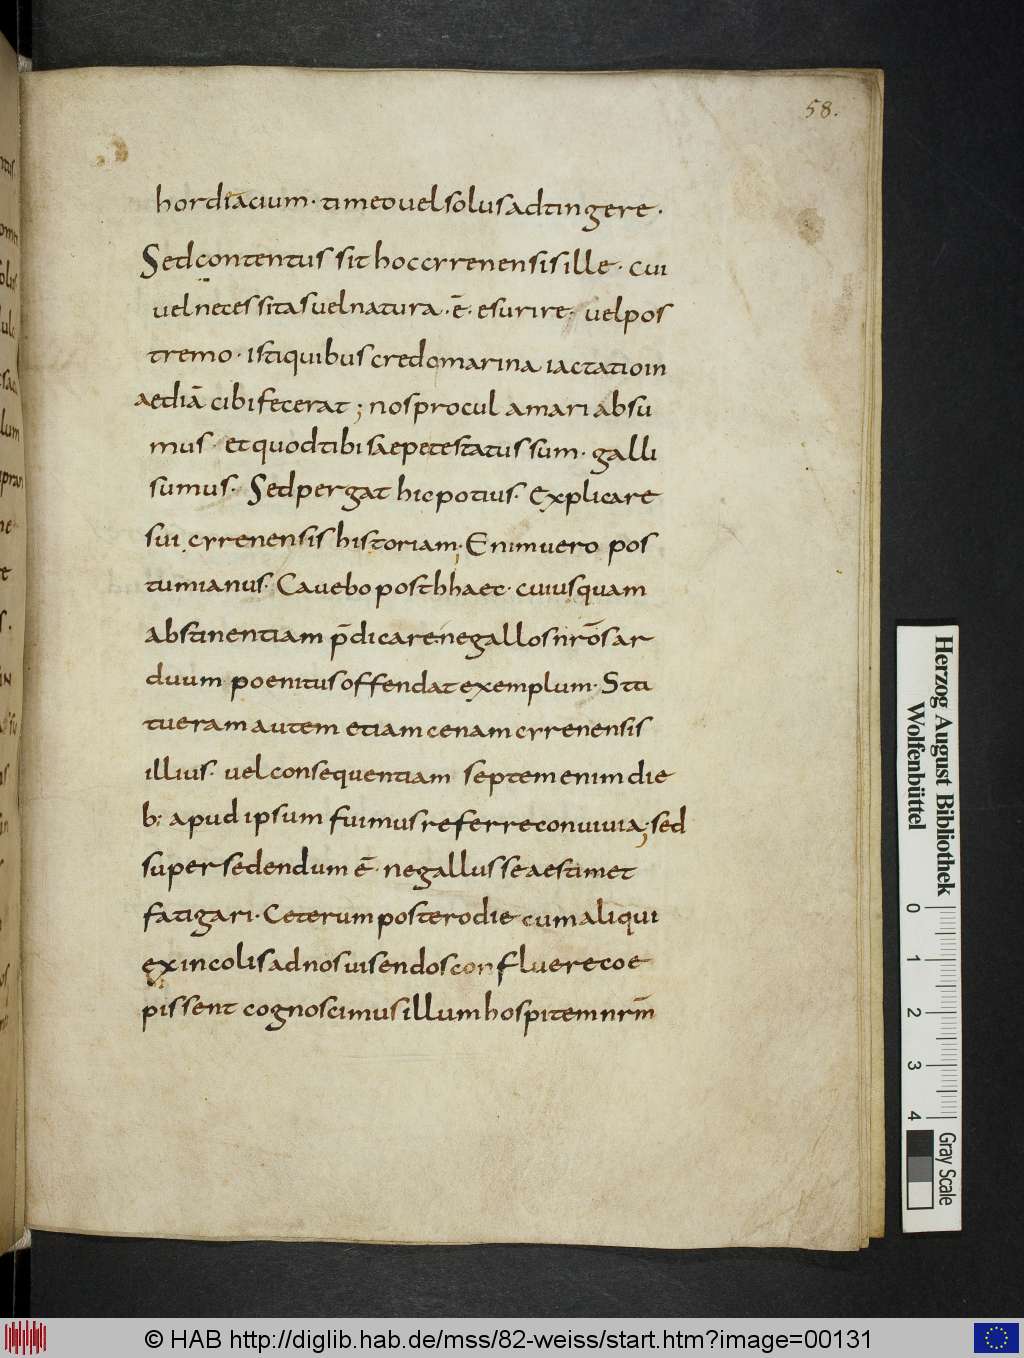 58.
hordiacium · timeo vel solus adtingere ·
Sed contentus sit hoc cyrenensis ille · cui
vel necessitas vel natura · ē · esurire · vel pos
tremo · isti quibus credo marina iactatio in
aediā cibi fecerat ; nos procul a mari absu
mus · et quod tibi saepe testatus sum · galli
sumus · Sed pergat hic potius · Explicare
sui cyrenensis historiam · Enimvero pos
tumianus · Cavebo posthhaec · cuiusquam
abstinentiam p̄dicare ne gallos nr̄os ar
duum poenitus offendat exemplum · Sta
tueram autem etiam cenam cyrenensis
illius · vel consequentiam septem enim die
b: apud ipsum fuimus referre convivia ; sed
supersedendum ē · ne gallus se aestimet
fatigari · Ceterum postero die cum aliqui
ex incolis ad nos visendos confluere coe
pissent cognoscimus illum hospitem nr̄m
Herzog August Bibliothek
Wolfenbüttel
0 1 2 3 4
Gray Scale
© HAB http://diglib.hab.de/mss/82-weiss/start.htm?image=00131